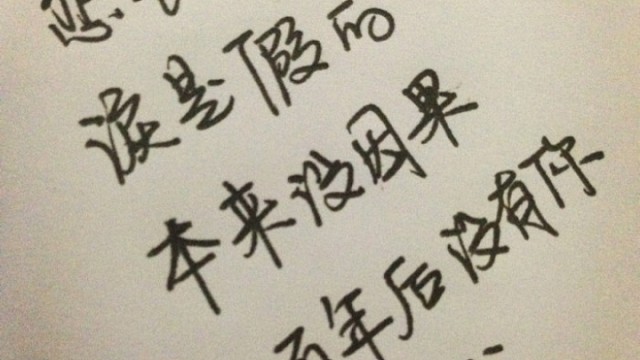 悲
泪是假的
本来没因果
百年后没有你